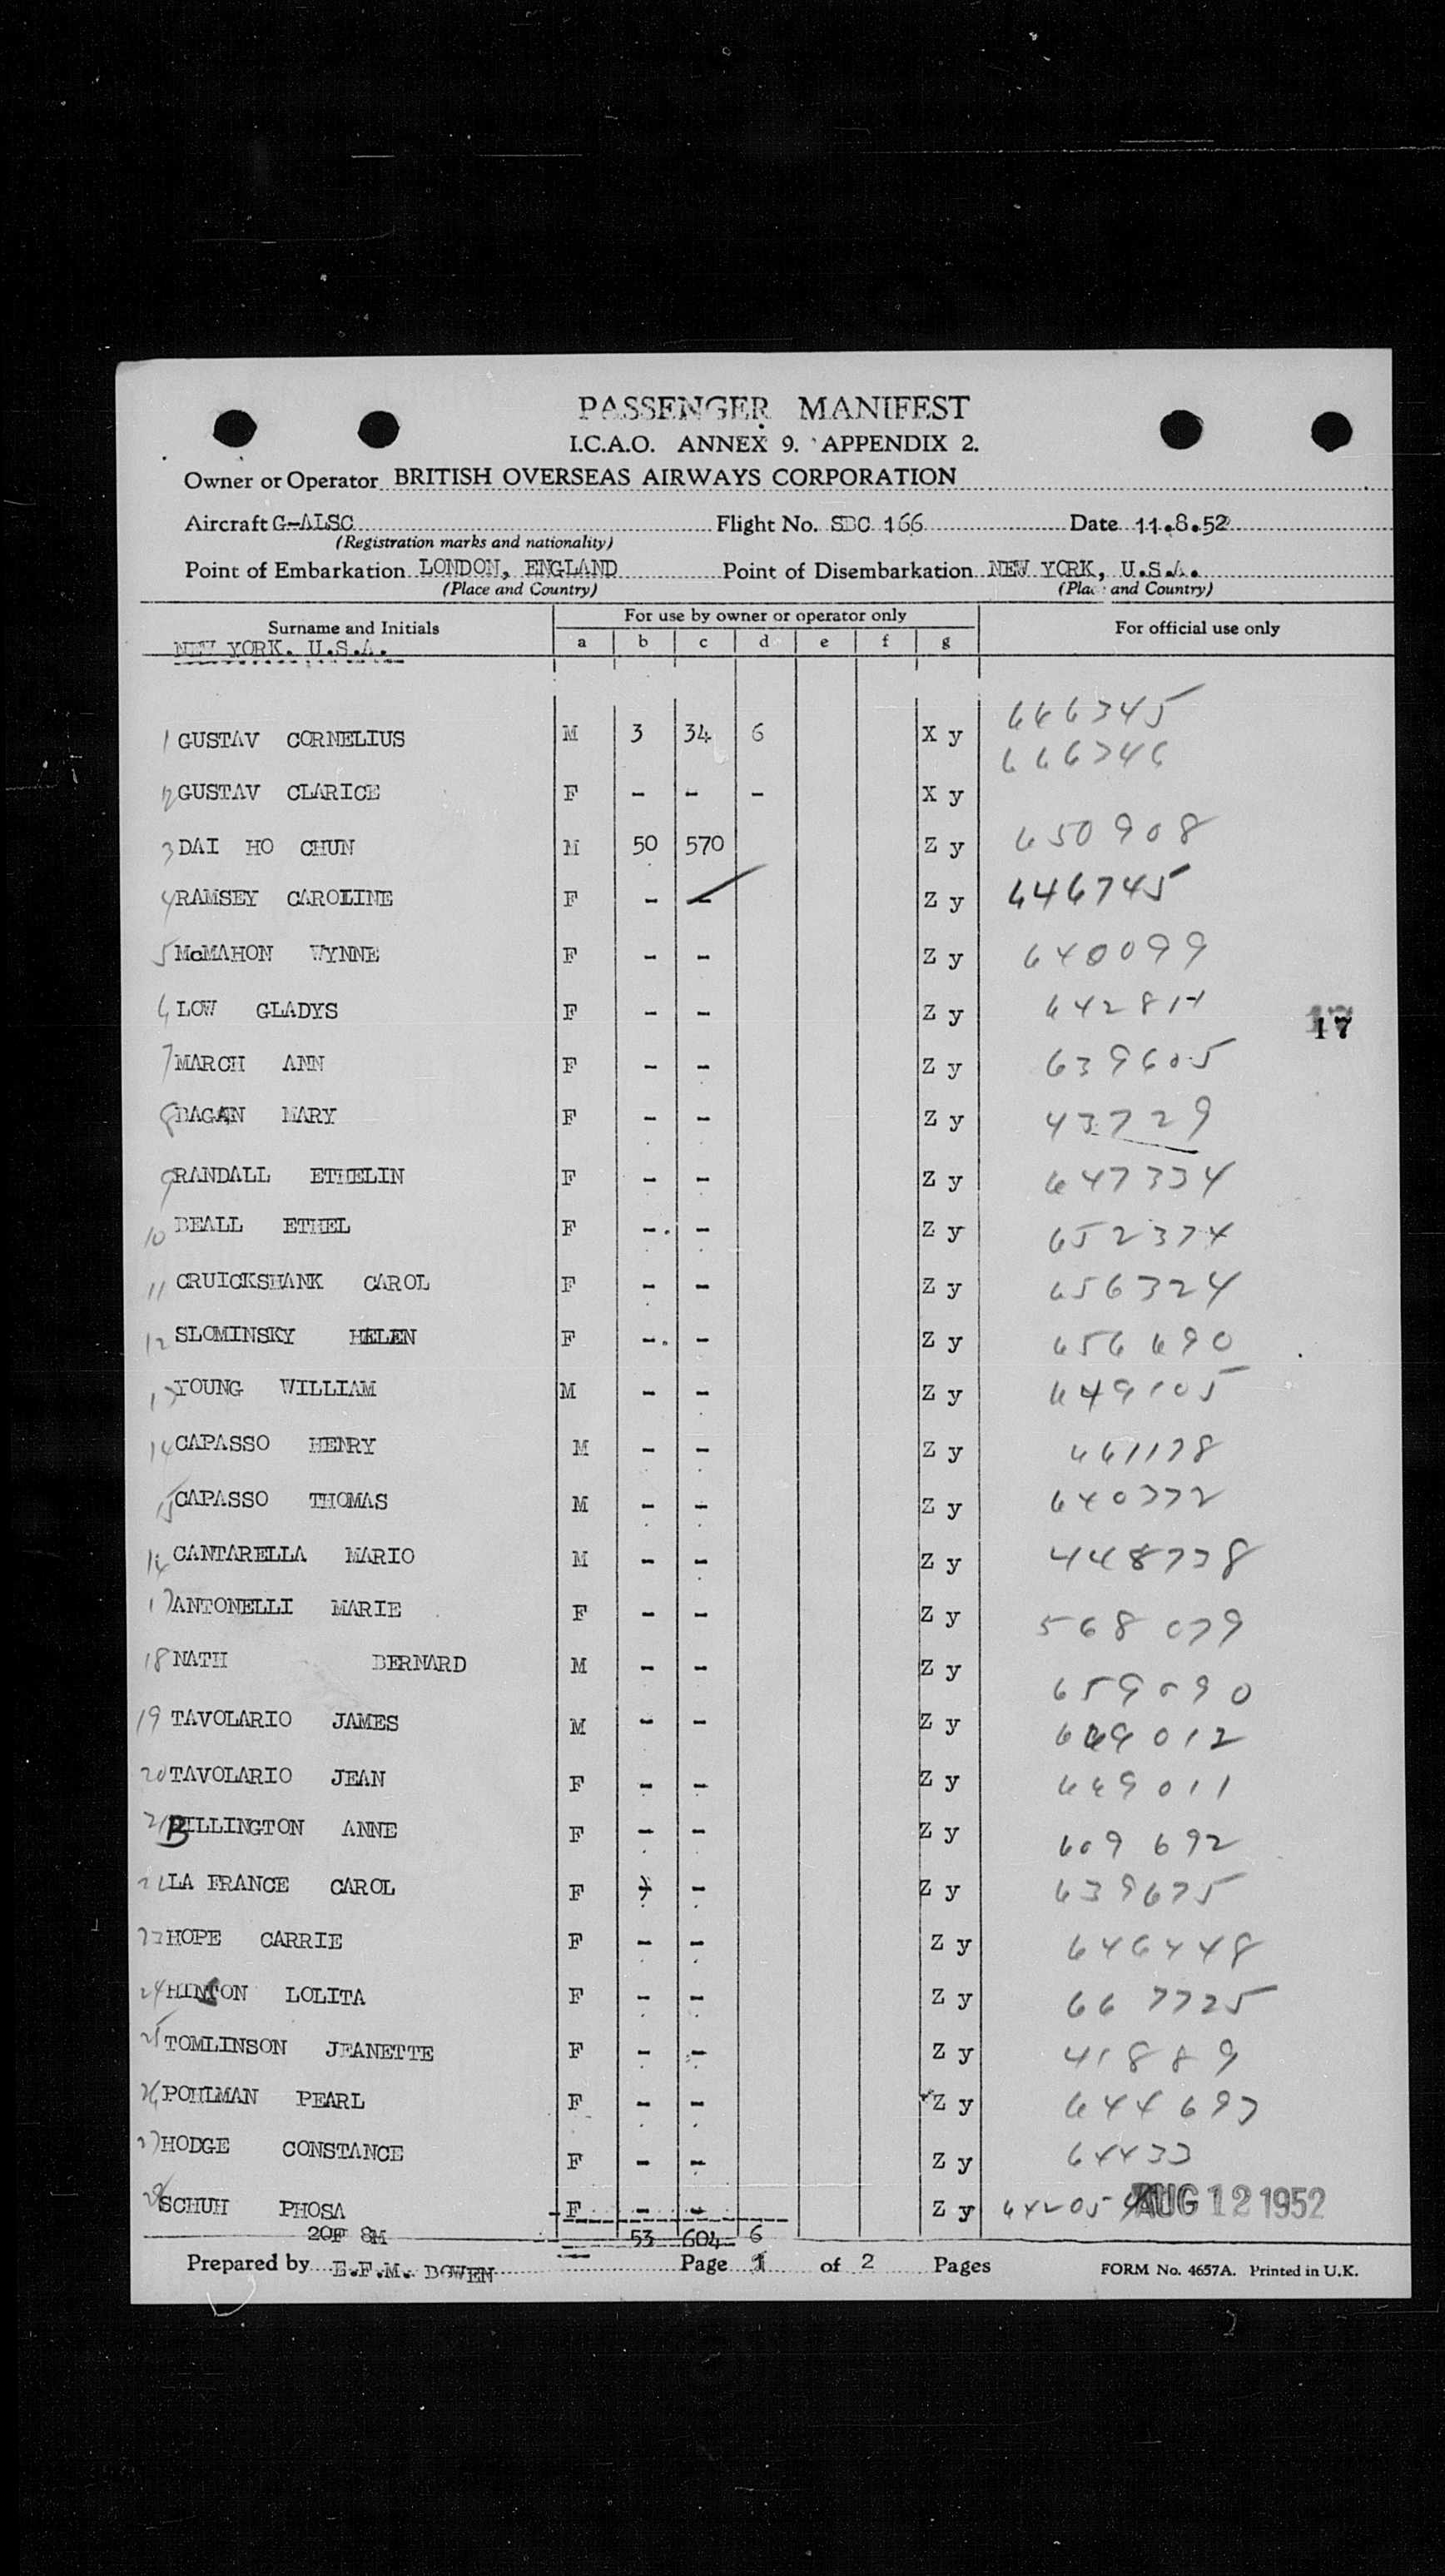 PASSENGER MANIFEST
I.C.A.O. ANNEX 9. APPENDIX 2.
Owner or Operator BRITISH OVERSEAS AIRWAYS CORPORATION
Aircraft G-ALSC Flight No. SBC 166 Date 11.8.52
(Registration marks and nationality)
Point of Embarkation LONDON, ENGLAND Point of Disembarkation NEW YORK, U.S.A.
(Place and Country) (Place and Country)
Surname and Initials For use by owner or operator only For official use only
a b c d e f g
NEW YORK. U.S.A.
1 GUSTAV CORNELIUS M 3 34 6 X y 646345
666346
2 GUSTAV CLARICE F - - - X y
3 DAI HO CHUN M 50 570 Z y 650908
4 RAMSEY CAROLINE F - - Z y 646745
5 McMAHON WYNNE F - - Z y 640099
6 LOW GLADYS F - - Z y
17
7 MARCH ANN F - - Z y 639605
8 DAGAN MARY F - - Z y 43729
9 RANDALL ETHELIN F - - Z y 647334
10 BEALL ETHEL F - - Z y 652374
11 CRUICKSHANK CAROL F - - Z y 656324
12 SLOMINSKY HELEN F - - Z y 656690
13 YOUNG WILLIAM M - - Z y 649105
14 CAPASSO HENRY M - - Z y 661178
15 CAPASSO THOMAS M - - Z y 640372
16 CANTARELLA MARIO M - - Z y 448738
17 ANTONELLI MARIE F - - Z y 568079
18 NATH BERNARD M - - Z y 659090
19 TAVOLARIO JAMES M - - Z y 649012
20 TAVOLARIO JEAN F - - Z y 649011
21 BILLINGTON ANNE F - - Z y 609692
22 LA FRANCE CAROL F - - Z y 639675
23 HOPE CARRIE F - - Z y 646448
24 HINTON LOLITA F - - Z y 667725
25 TOMLINSON JEANETTE F - - Z y 41889
26 POHLMAN PEARL F - - Z y 644693
27 HODGE CONSTANCE F - - Z y 64433
28 SCHUH PHOSA F - - Z y AUG 12 1952
20F 8M 53 604 6
Prepared by E.F.M. BOWEN Page 1 of 2 Pages FORM No. 4657A. Printed in U.K.